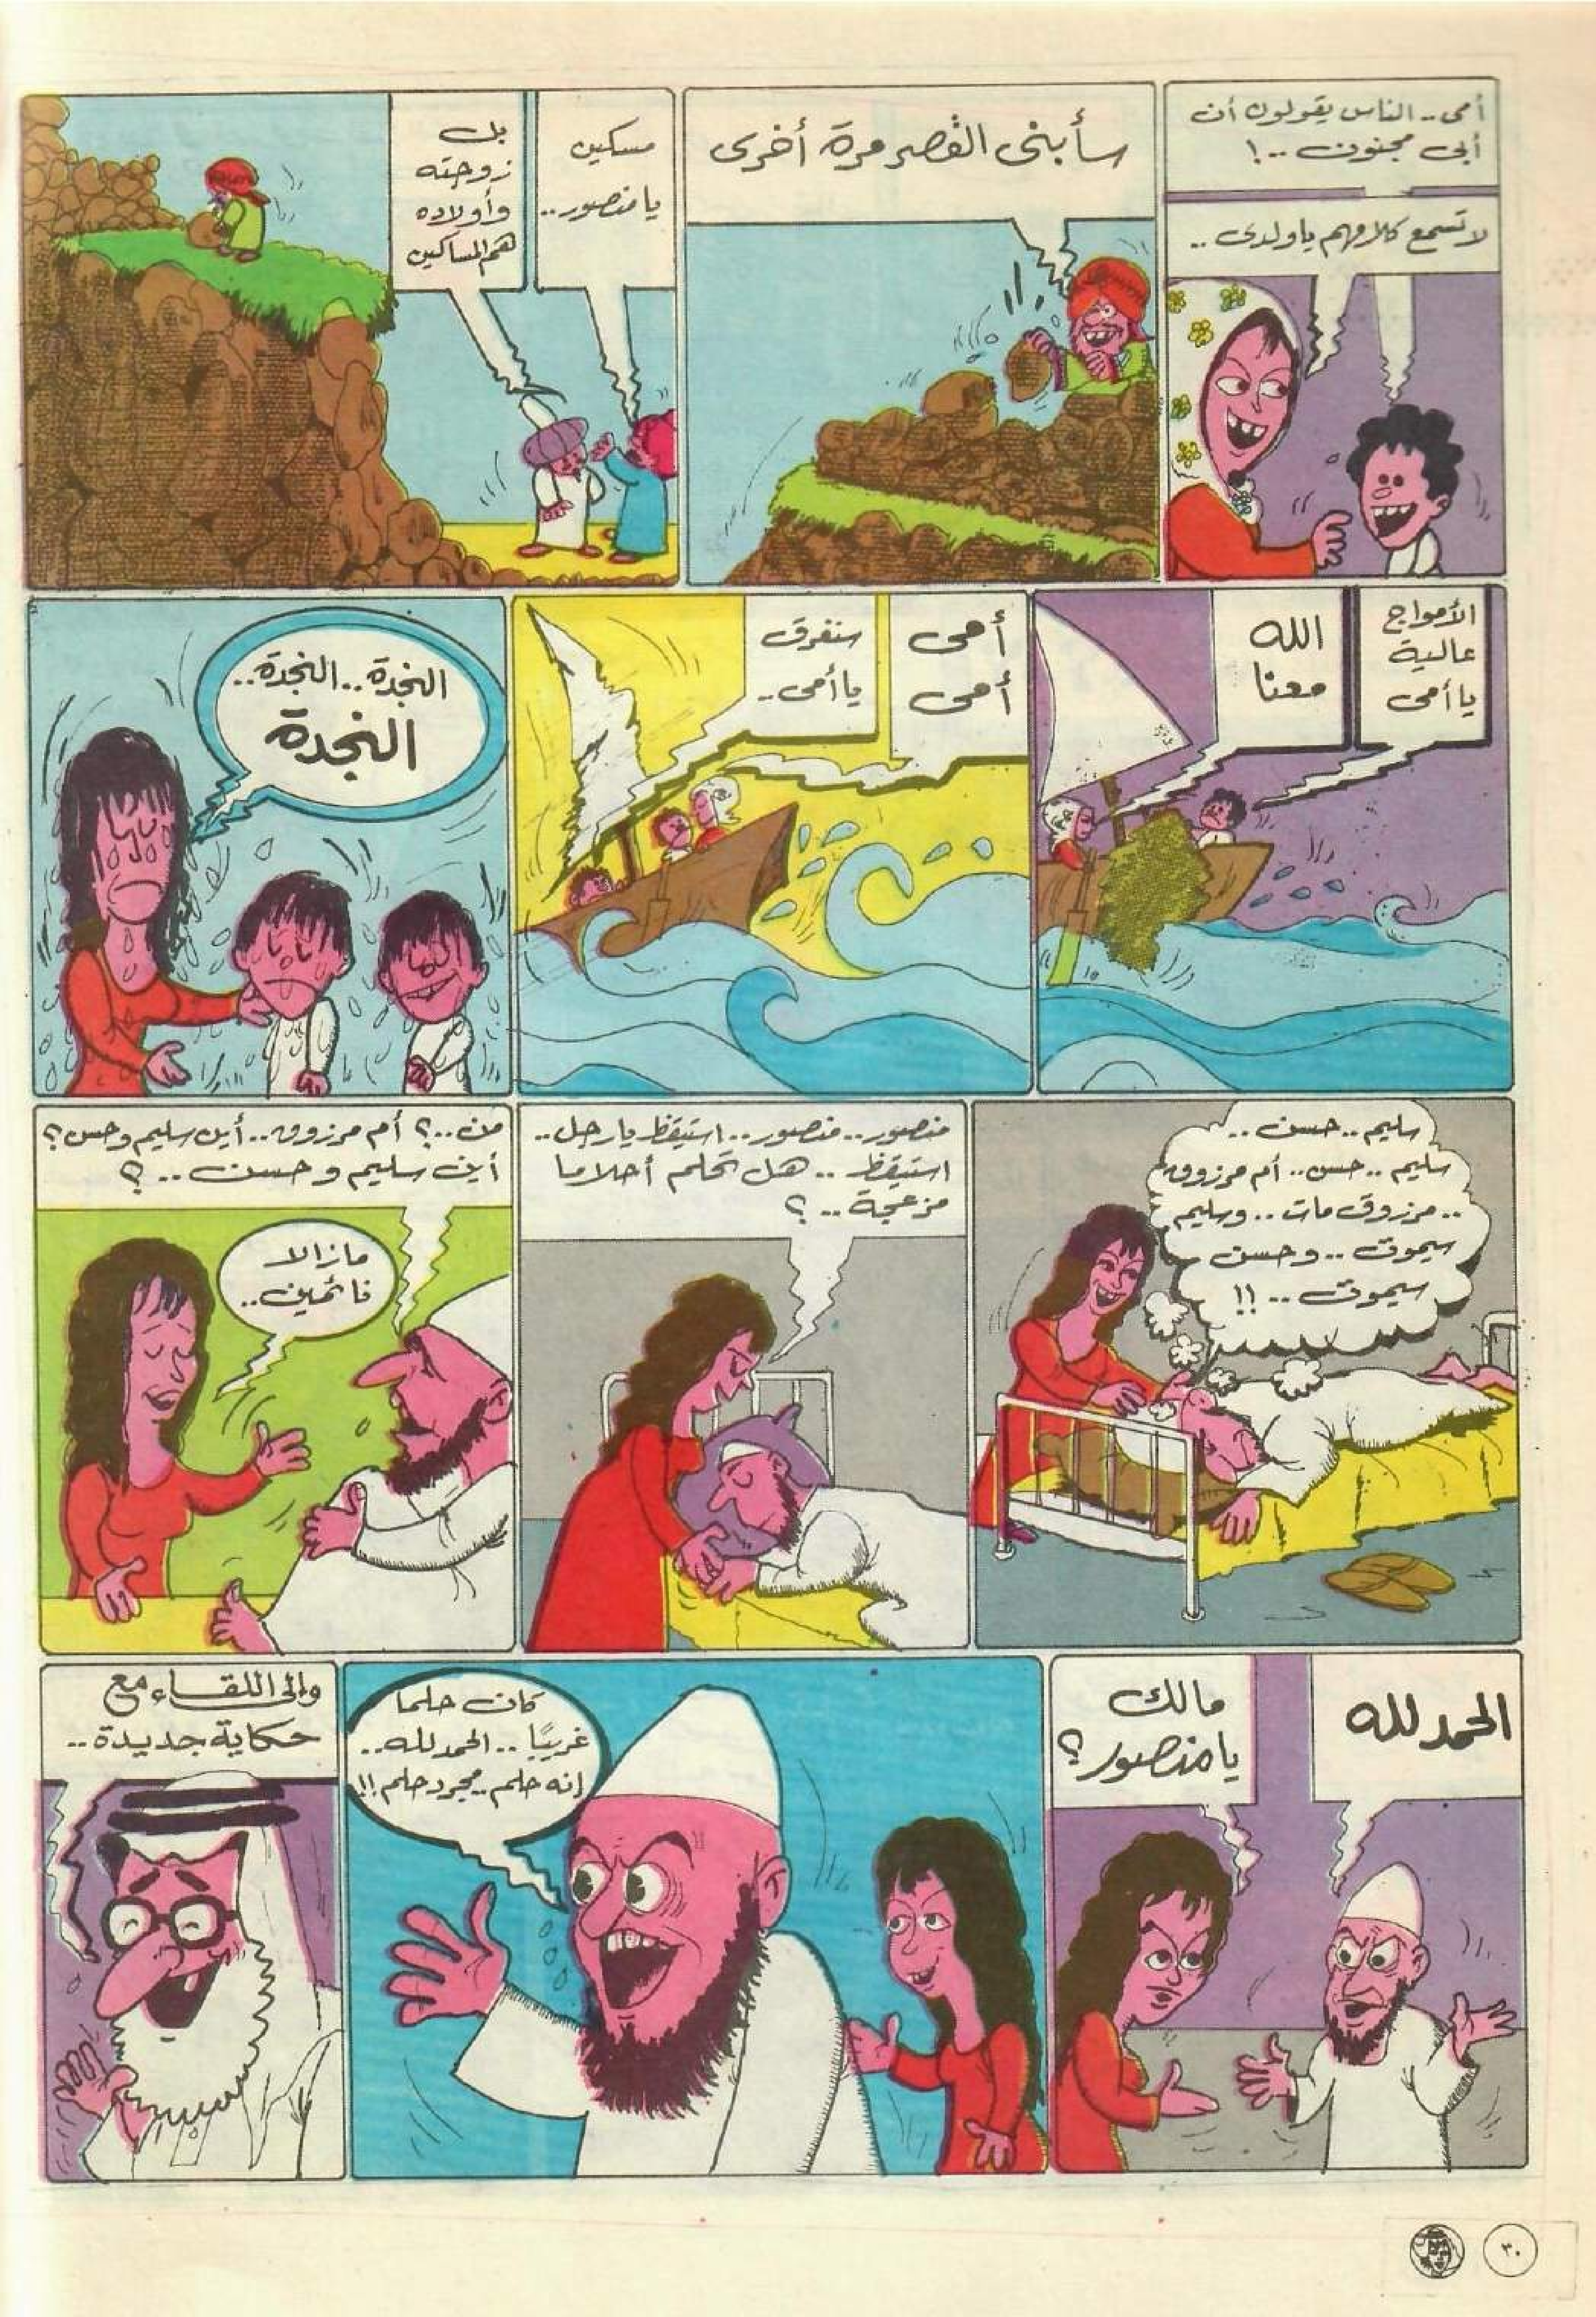 أمى .. الناس يقولون أن
أبى مجنون .. !
لا تسمع كلامهم يا ولدى ..
سأبنى القصر مرة أخرى
مسكين
يا منصور ..
بل
زوجته
وأولاده
هم المساكين
الأمواج
عالية
يا أمى
الله
معنا
أمى
أمى
سنغرق
يا أمى ..
النجدة .. النجدة ..
النجدة
سليم .. حسن ..
سليم .. حسن .. أم مرزوق
.. مرزوق مات .. وسليم
سيموت .. وحسن
سيموت .. !!
منصور .. منصور .. استيقظ يا رجل ..
استيقظ .. هل تحلم أحلاما
مزعجة .. ؟
من .. ؟ أم مرزوق .. أين سليم وحسن ؟
أين سليم وحسن .. ؟
مازالا
نائمين ..
الحمد لله
مالك
يا منصور ؟
كان حلما
غريبًا .. الحمد لله ..
إنه حلم .. مجرد حلم !!
وإلى اللقاء مع
حكاية جديدة ..
٣٠